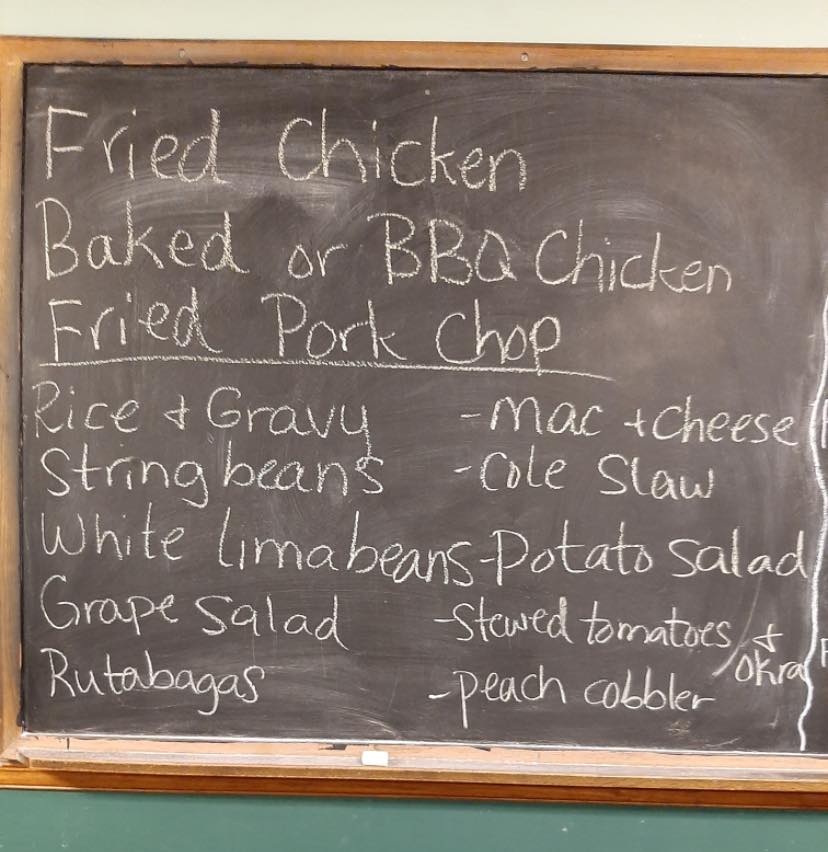 Fried Chicken
Baked or BBQ Chicken
Fried Pork Chop
Rice & Gravy -Mac + Cheese
String beans -Cole Slaw
White limabeans -Potato Salad
Grape Salad -Stewed tomatoes & Okra
Rutabagas -peach cobbler